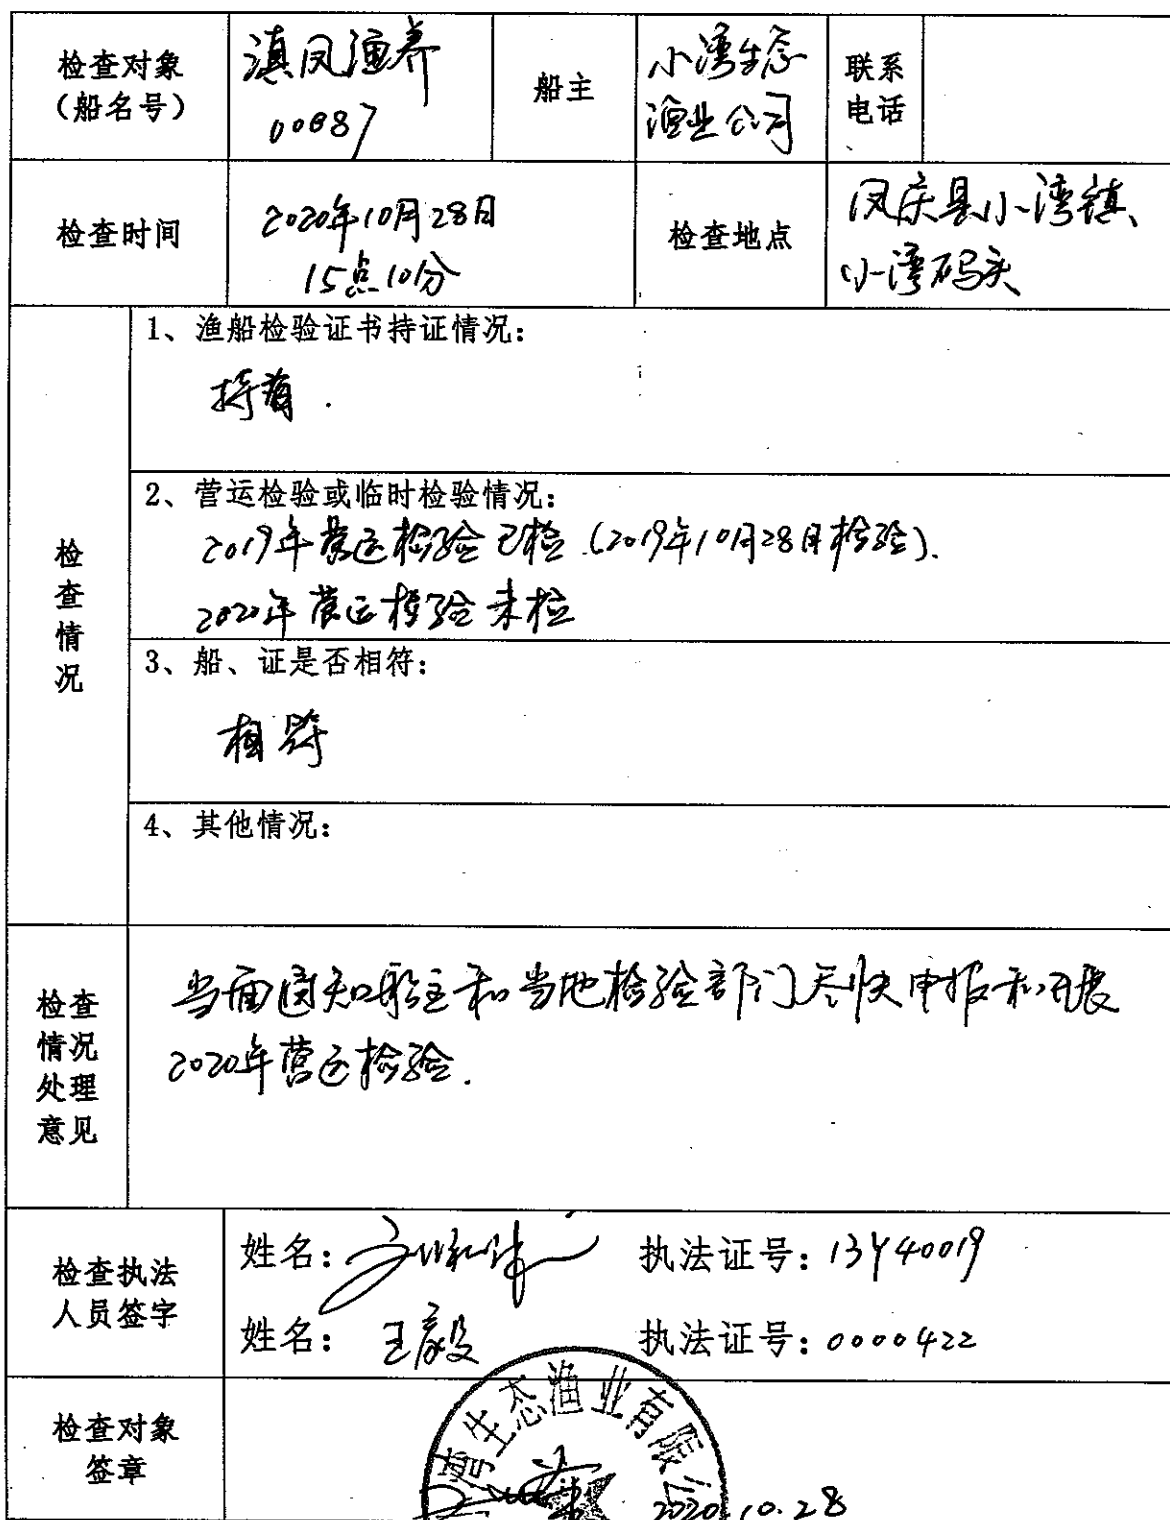 检查对象
（船名号）
滇凤渔养
00087
船主
小湾生态
渔业公司
联系
电话
检查时间
2020年10月28日
15点10分
检查地点
凤庆县小湾镇、
小湾码头
检查情况
1、渔船检验证书持证情况：
持有.
2、营运检验或临时检验情况：
2019年营运检验已检.(2019年10月28日检验).
2020年营运检验未检
3、船、证是否相符：
相符
4、其他情况：
检查
情况
处理
意见
当面通知船主和当地检验部门尽快申报和开展
2020年营运检验.
检查执法
人员签字
姓名： 执法证号：13Y40019
姓名：王毅 执法证号：0000422
检查对象
签章
湾生态渔业有限公
2020.10.28